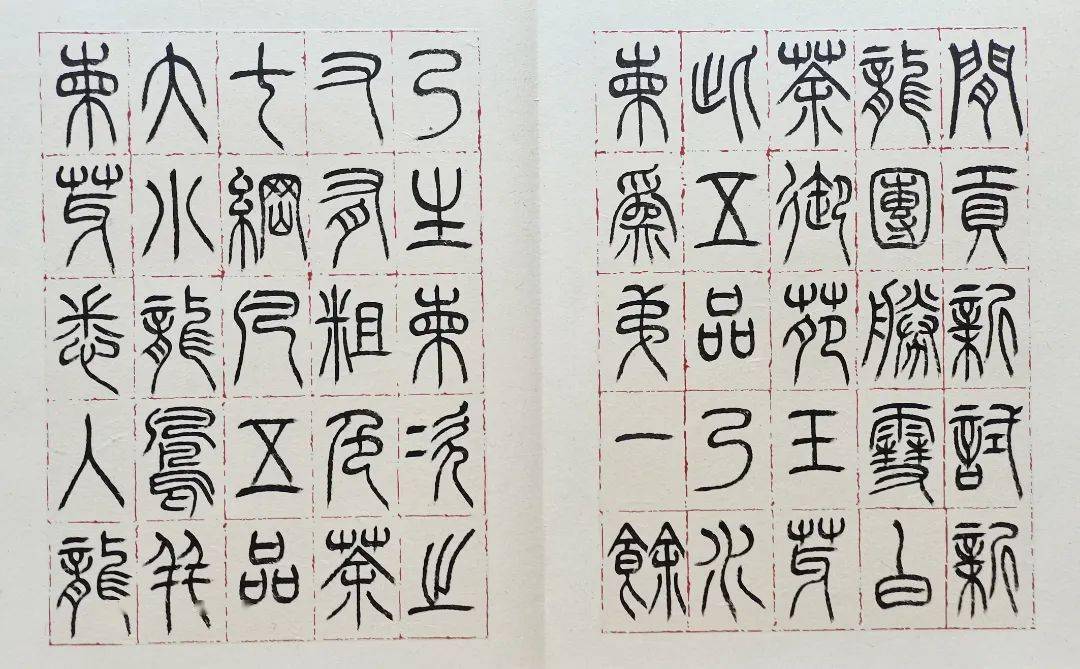 間貢新試新
龍團勝雪白
茶御苑玉芽
此五品乃水
柬爲弟一餘
乃生柬次之
又有粗色茶
七綱凡五品
大小龍鳳并
柬芽悉入龍